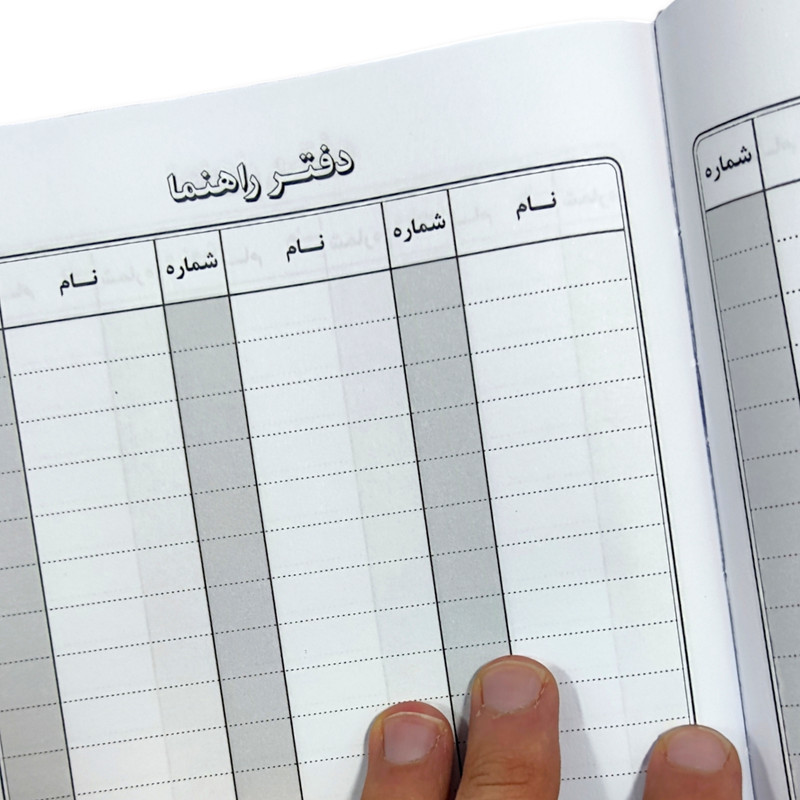 دفتر راهنما
نام شماره نام شماره نام
شماره